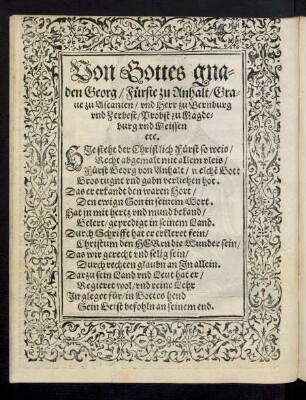 Von Gottes gna-
den Georg / Fürste zu Anhalt / Gra-
ue zu Ascanien / vnd Herr zu Bernburg
vnd Zerbest / Probst zu Magde-
burg vnd Meissen
etc.
HIe steht der Christlich Fürst so weis /
Recht abgemalt mit allem vleis /
Fürst Georg von Anhalt / welchē Gott
Gros tugnt vnd gabn verliehen hot.
Das er erkandt den waren Hort /
Den ewign Son in seinem Wort.
Hat jn mit hertz vnd mund bekand /
Gelert / gepredigt in seinem Land.
Durch Schrifft hat er erkleret fein /
Christum den HERrn die Wunder sein /
Das wir gerecht vnd selig sein /
Durch rechten glaubn an In allein.
Darzu sein Land vnd Leut hat er /
Regieret wol / vnd reine Lehr
In gleget für / in Gottes hend
Sein Geist befohln an seinem end.